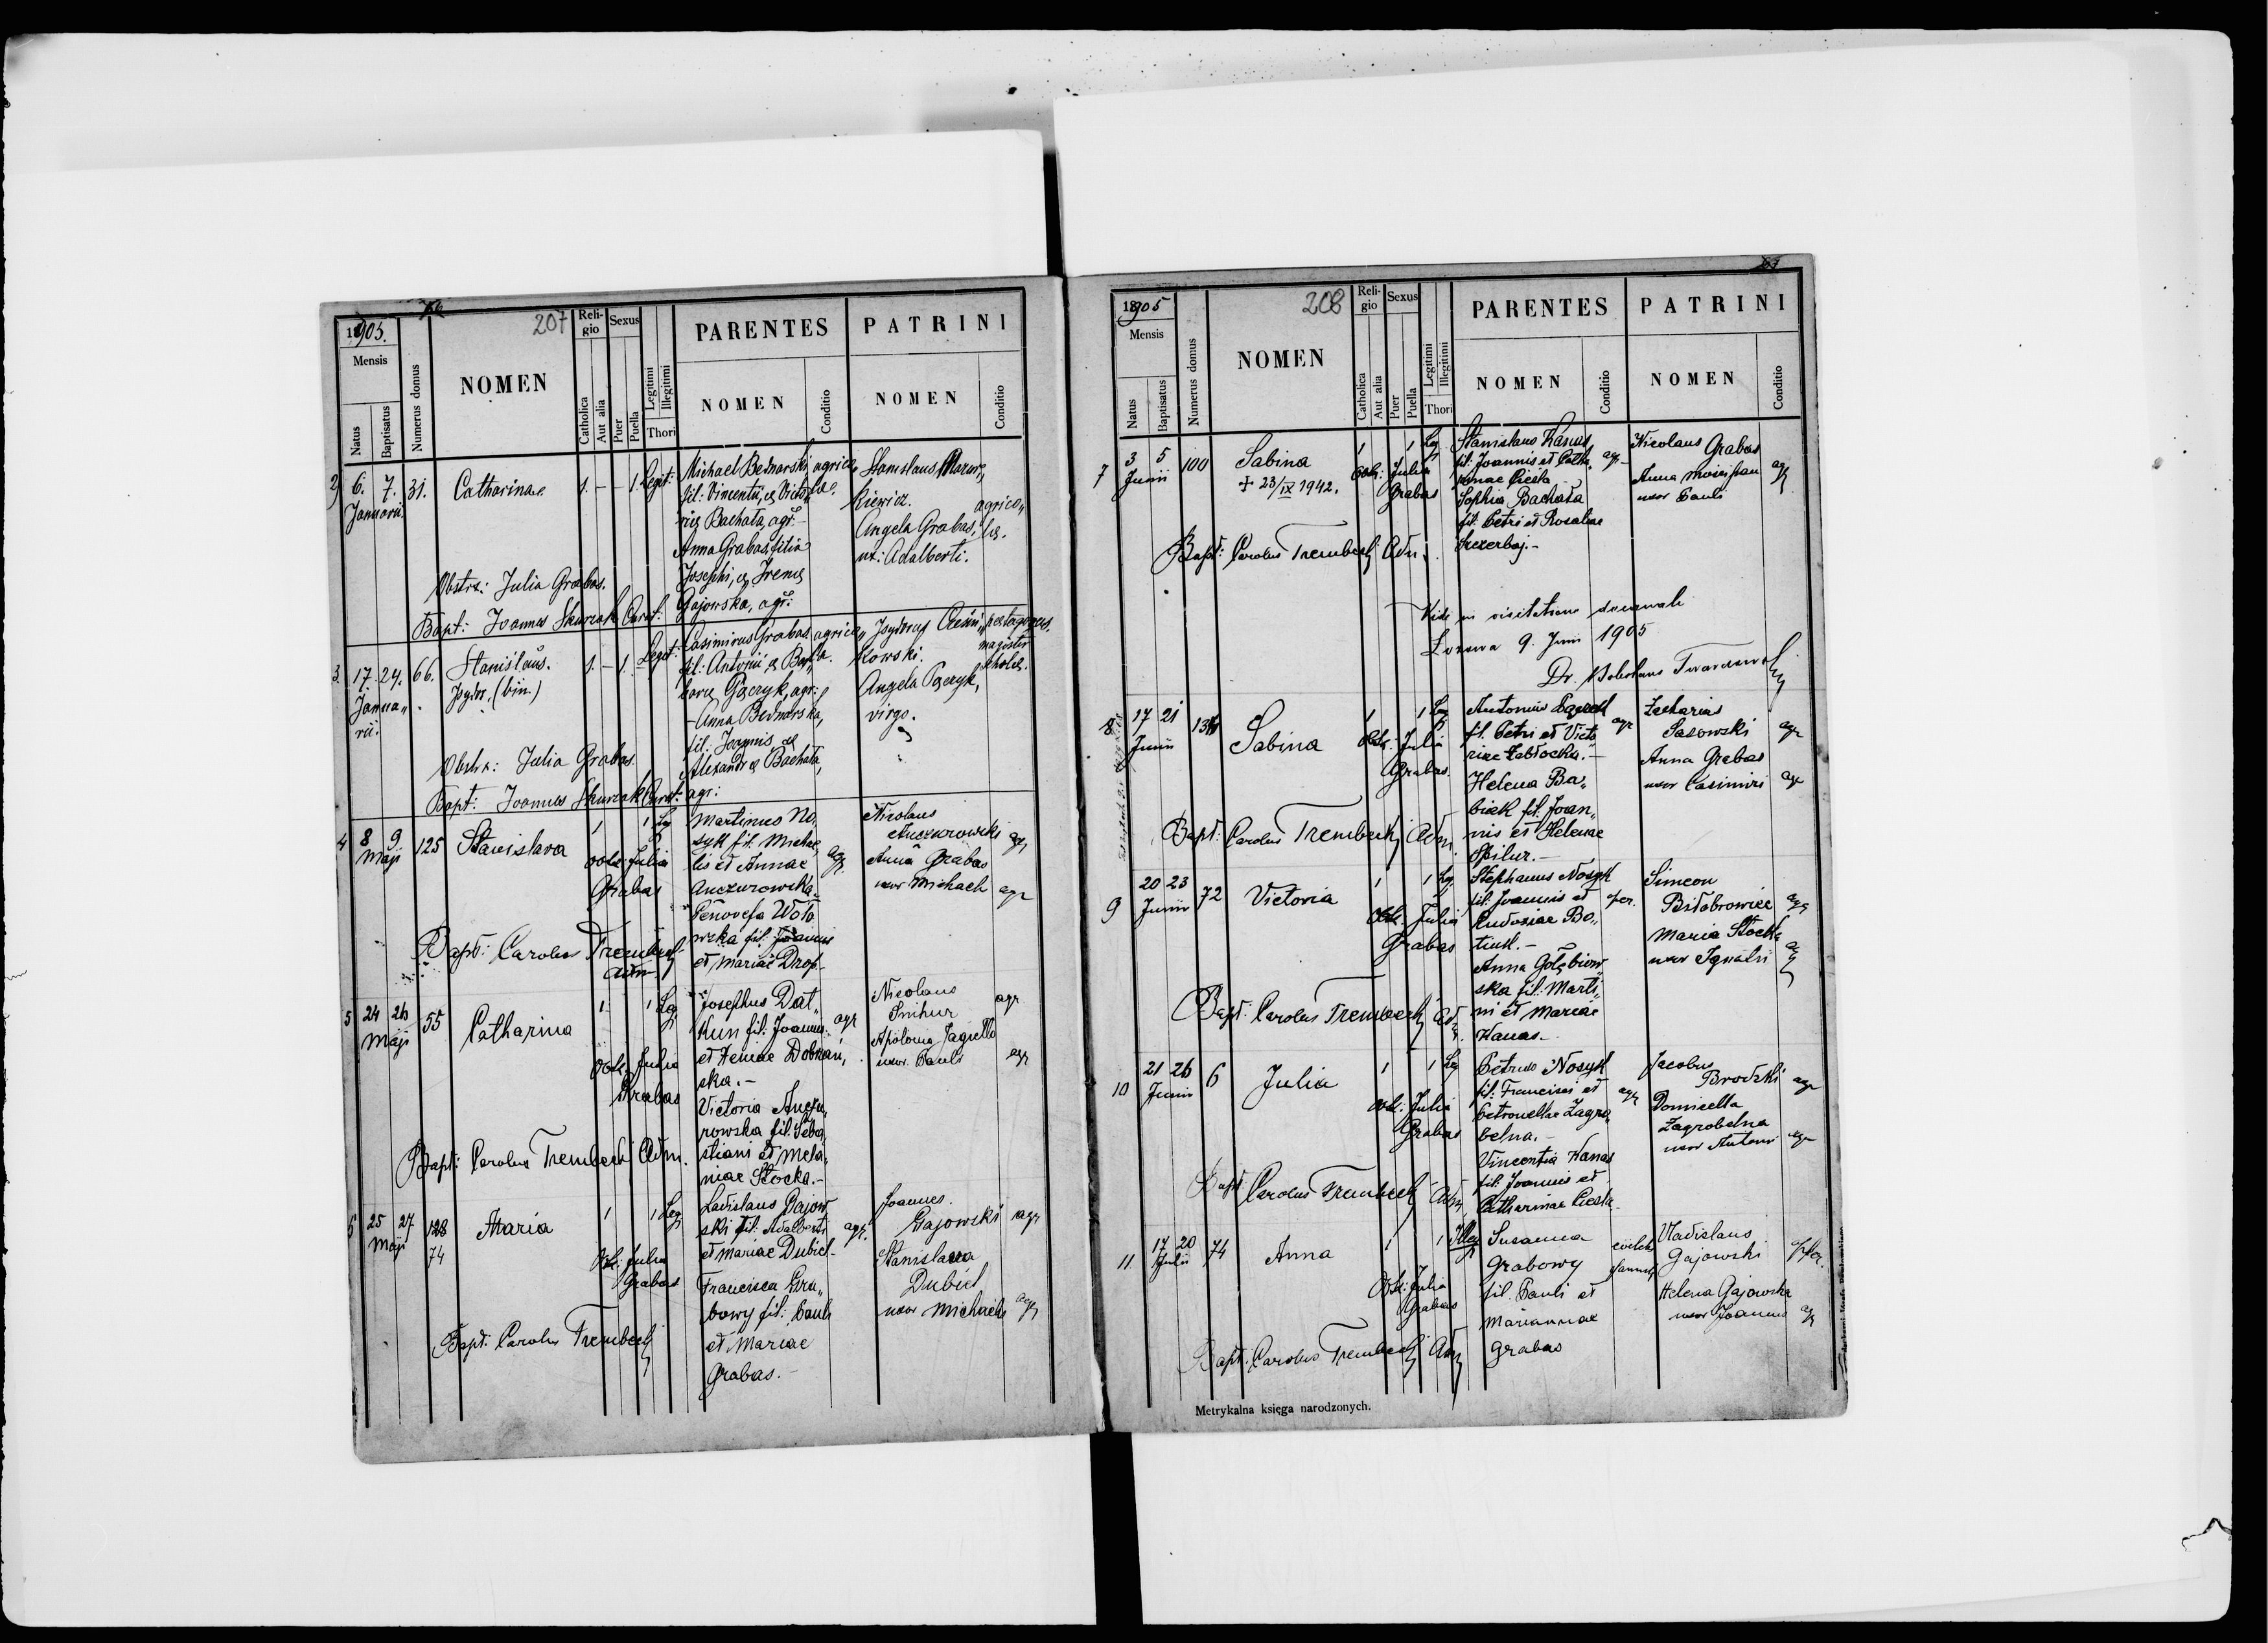 1905.
207
Mensis
Natus
Baptisatus
Numerus domus
NOMEN
Reli-
gio
Catholica
Aut alia
Sexus
Puer
Puella
Legitimi
Illegitimi
Thori
PARENTES
NOMEN
Conditio
PATRINI
NOMEN
Conditio
2
6. 7. 31. Catharina. 1. — — 1. Legit:
Januarii.
Michael Bednarski, agrico„
fil: Vincentii, et Victo„ lae.
riae Bachata, agr.-
Anna Grabas, filia
Josephi, et Irenae
Gajowska, agr:
Stanislaus
kiewicz. agrico„
Angela Grabas, lae.
ux: Adalberti.
Obstrx: Julia Grabas.
Bapt: Joannes Skurzak Curat:
3. 17. 24. 66. Stanislaus. 1. — 1. Legit:
Janua„ (bin.)
rii.
Casimirus Grabas, agrico„
fil: Antonii et Bar„ la.
Gaczyk, agr:
- Anna Bednarska,
fil: Joannis et
Alexandrae Bachata,
agr:
kowski.
Angela Gaczyk,
virgo.
Obstrx: Julia Grabas.
Bapt: Joannes Skurzak Curat:
4 8 9 125 Stanislava 1 1 Leg
Maji
Obst: Julia
Grabas
Martinus No„
syk fil: Michae„
lis et Annae agr.
Anczurowska.
Genovefa Woło
wska fil: Joannis
et Mariae Drop.-
Nicolaus
Anczurowski agr
Anna Grabas
uxor Michaeli agr
Bapt: Carolus Trembecki
Adm.
5 24 26 55 Catharina 1 1 Leg
Maji
Obst: Julia
Grabas
Josephus Dat„
kun fil: Joannis agr
ska.-
Victoria Anczu„
rowska fil: Seba„
stiani et Mela„
niae Stocka.-
Nicolaus
Snihur agr
Apolonia Jagiełło
uxor Pauli agr
Bapt: Carolus Trembecki Adm.
6 25 27 128 Maria 1 1 Leg
Maji 74
Obst: Julia
Grabas
Ladislaus Gajow„
ski fil: Adalberti agr.
et Mariae Dubiel-
Francisca Gra„
bowy fil: Pauli
et Mariae
Grabas.-
Joannes
Gajowski agr
Stanislava
Dubiel
uxor Michaelis agr
Bapt: Carolus Trembecki
1905
208
Mensis
Natus
Baptisatus
Numerus domus
NOMEN
Reli-
gio
Catholica
Aut alia
Sexus
Puer
Puella
Legitimi
Illegitimi
Thori
PARENTES
NOMEN
Conditio
PATRINI
NOMEN
Conditio
7 3 5 100 Sabina 1 1 Leg
Junii + 23/IX 1942.
Obst: Julia
Grabas
Stanislaus Kanas
fil: Joannis et Catha„ agr-
rinae Piesta
Sophia Bachata
fil: Petri et Rosaliae
Szczerbaj.-
Nicolaus Grabas
Anna agr
uxor Pauli
Bapt: Carolus Trembecki Adm.
Vidi in visitatione decanali
9. Junii 1905
Dr. Boleslaus Twardowski
8 17 21 Sabina 1 1 Leg
Junii
Obst: Julia
Grabas.
Antonius
fil: Petri et Victo„ agr
riae Zabłocka.-
Helena Ba„
biak fil: Joan„
nis et Helenae
Spilur.-
Zacharias
Sasowski agr
Anna Grabas
uxor Casimiri agr
Bapt: Carolus Trembecki Adm.
9 20 23 72 Victoria 1 1 Leg
Junii
Obst: Julia
Grabas
Stephanus Nosyk
fil: Joannis et
Eudoxiae Bo„
tiuk.-
Anna Gołębiow„
ska fil: Marti„
ni et Mariae
Kanas.-
Simeon
Biłobrowiec agr
Maria Stocka
uxor Ignatii agr
Bapt: Carolus Trembecki Adm.
10 21 26 6 Julia 1 1 Leg
Junii
Obst: Julia
Grabas
Petrus Nosyk
fil: Francisci et agr
Petronellae Zagro„
belna.-
Vincentia Kanas
fil: Joannis et
Catharinae Piesta
Jacobus
Brodzki agr
Domicella
Zagrobelna
uxor Antoni agr
Bapt: Carolus Trembecki Adm
11 17 20 74 Anna 1 1 Illeg
Julii
Obst: Julia
Grabas
Susanna
Grabowy
fil: Pauli et
Mariannae
Grabas
Vladislaus
Gajowski
Helena Gajowska
uxor Joannis agr
Bapt: Carolus Trembecki Adm
Metrykalna księga narodzonych.